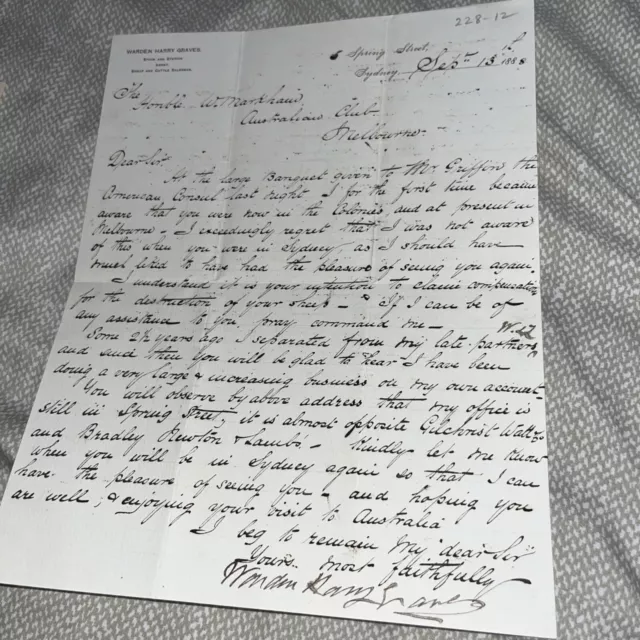 228-12
WARDEN HARRY GRAVES.
STOCK AND STATION
AGENT,
STOCK AND CATTLE SALESMAN.
Spring Street,
Sydney, Sept 13th 1888
The
Honble W. Markham,
Australian Club
Melbourne.
Dear Sir
At the large Banquet given to Mr. Griffin the
American Consul last night I for the first time became
aware that you were now in the Colonies and at present in
Melbourne. I exceedingly regret that I was not aware
of this when you were in Sydney, as I should have
much liked to have had the pleasure of seeing you again.
I understand it is your intention to claim compensation
for the destruction of your - & If I can be of
any assistance to you, pray command me -
Some 2½ years ago I separated from my late partners,
and since then you will be glad to hear I have been
doing a very large & increasing business on my own account
You will observe by above address that my office is
still in Spring Street, it is almost opposite Gilchrist Watt & Co
and Bradley Newton & Lamb's - Kindly let me know
when you will be in Sydney again so that I can
have the pleasure of seeing you - and hoping you
are well, & enjoying your visit to Australia
I beg to remain My dear Sir
Yours most faithfully
Warden Harry Graves